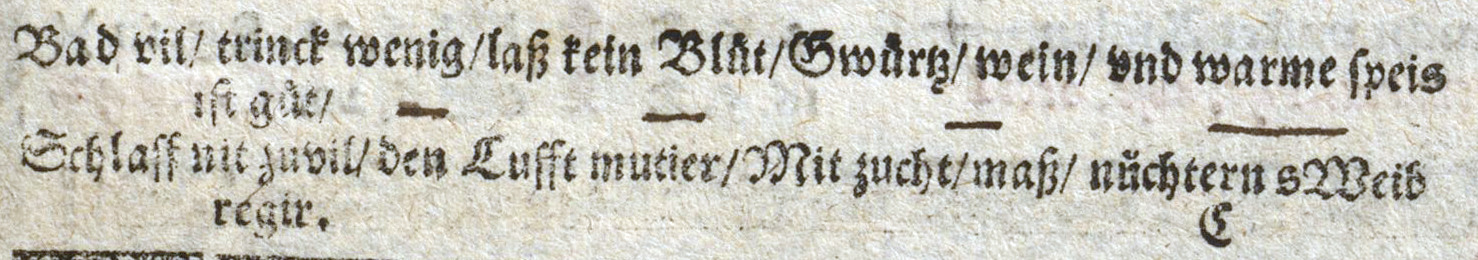 Bad vil/ trinck wenig/laß kein Blůt/Gwürtz/ wein/ vnd warme speis
ist gůt/
Schlaff nit zuvil/ den Lufft mutier/Mit zucht/maß/ nůchtern sWeib
regir.
C